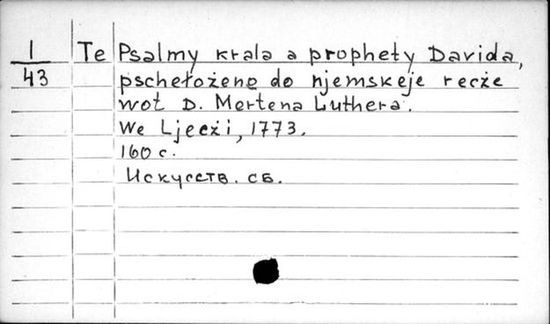 1 Te Psalmy krala a prophety Davida,
43 pschełożene do njemskeje recże
wot D. Mertena Luthera.
We Ljecżi, 1773.
160 c.
Искусств. сб.